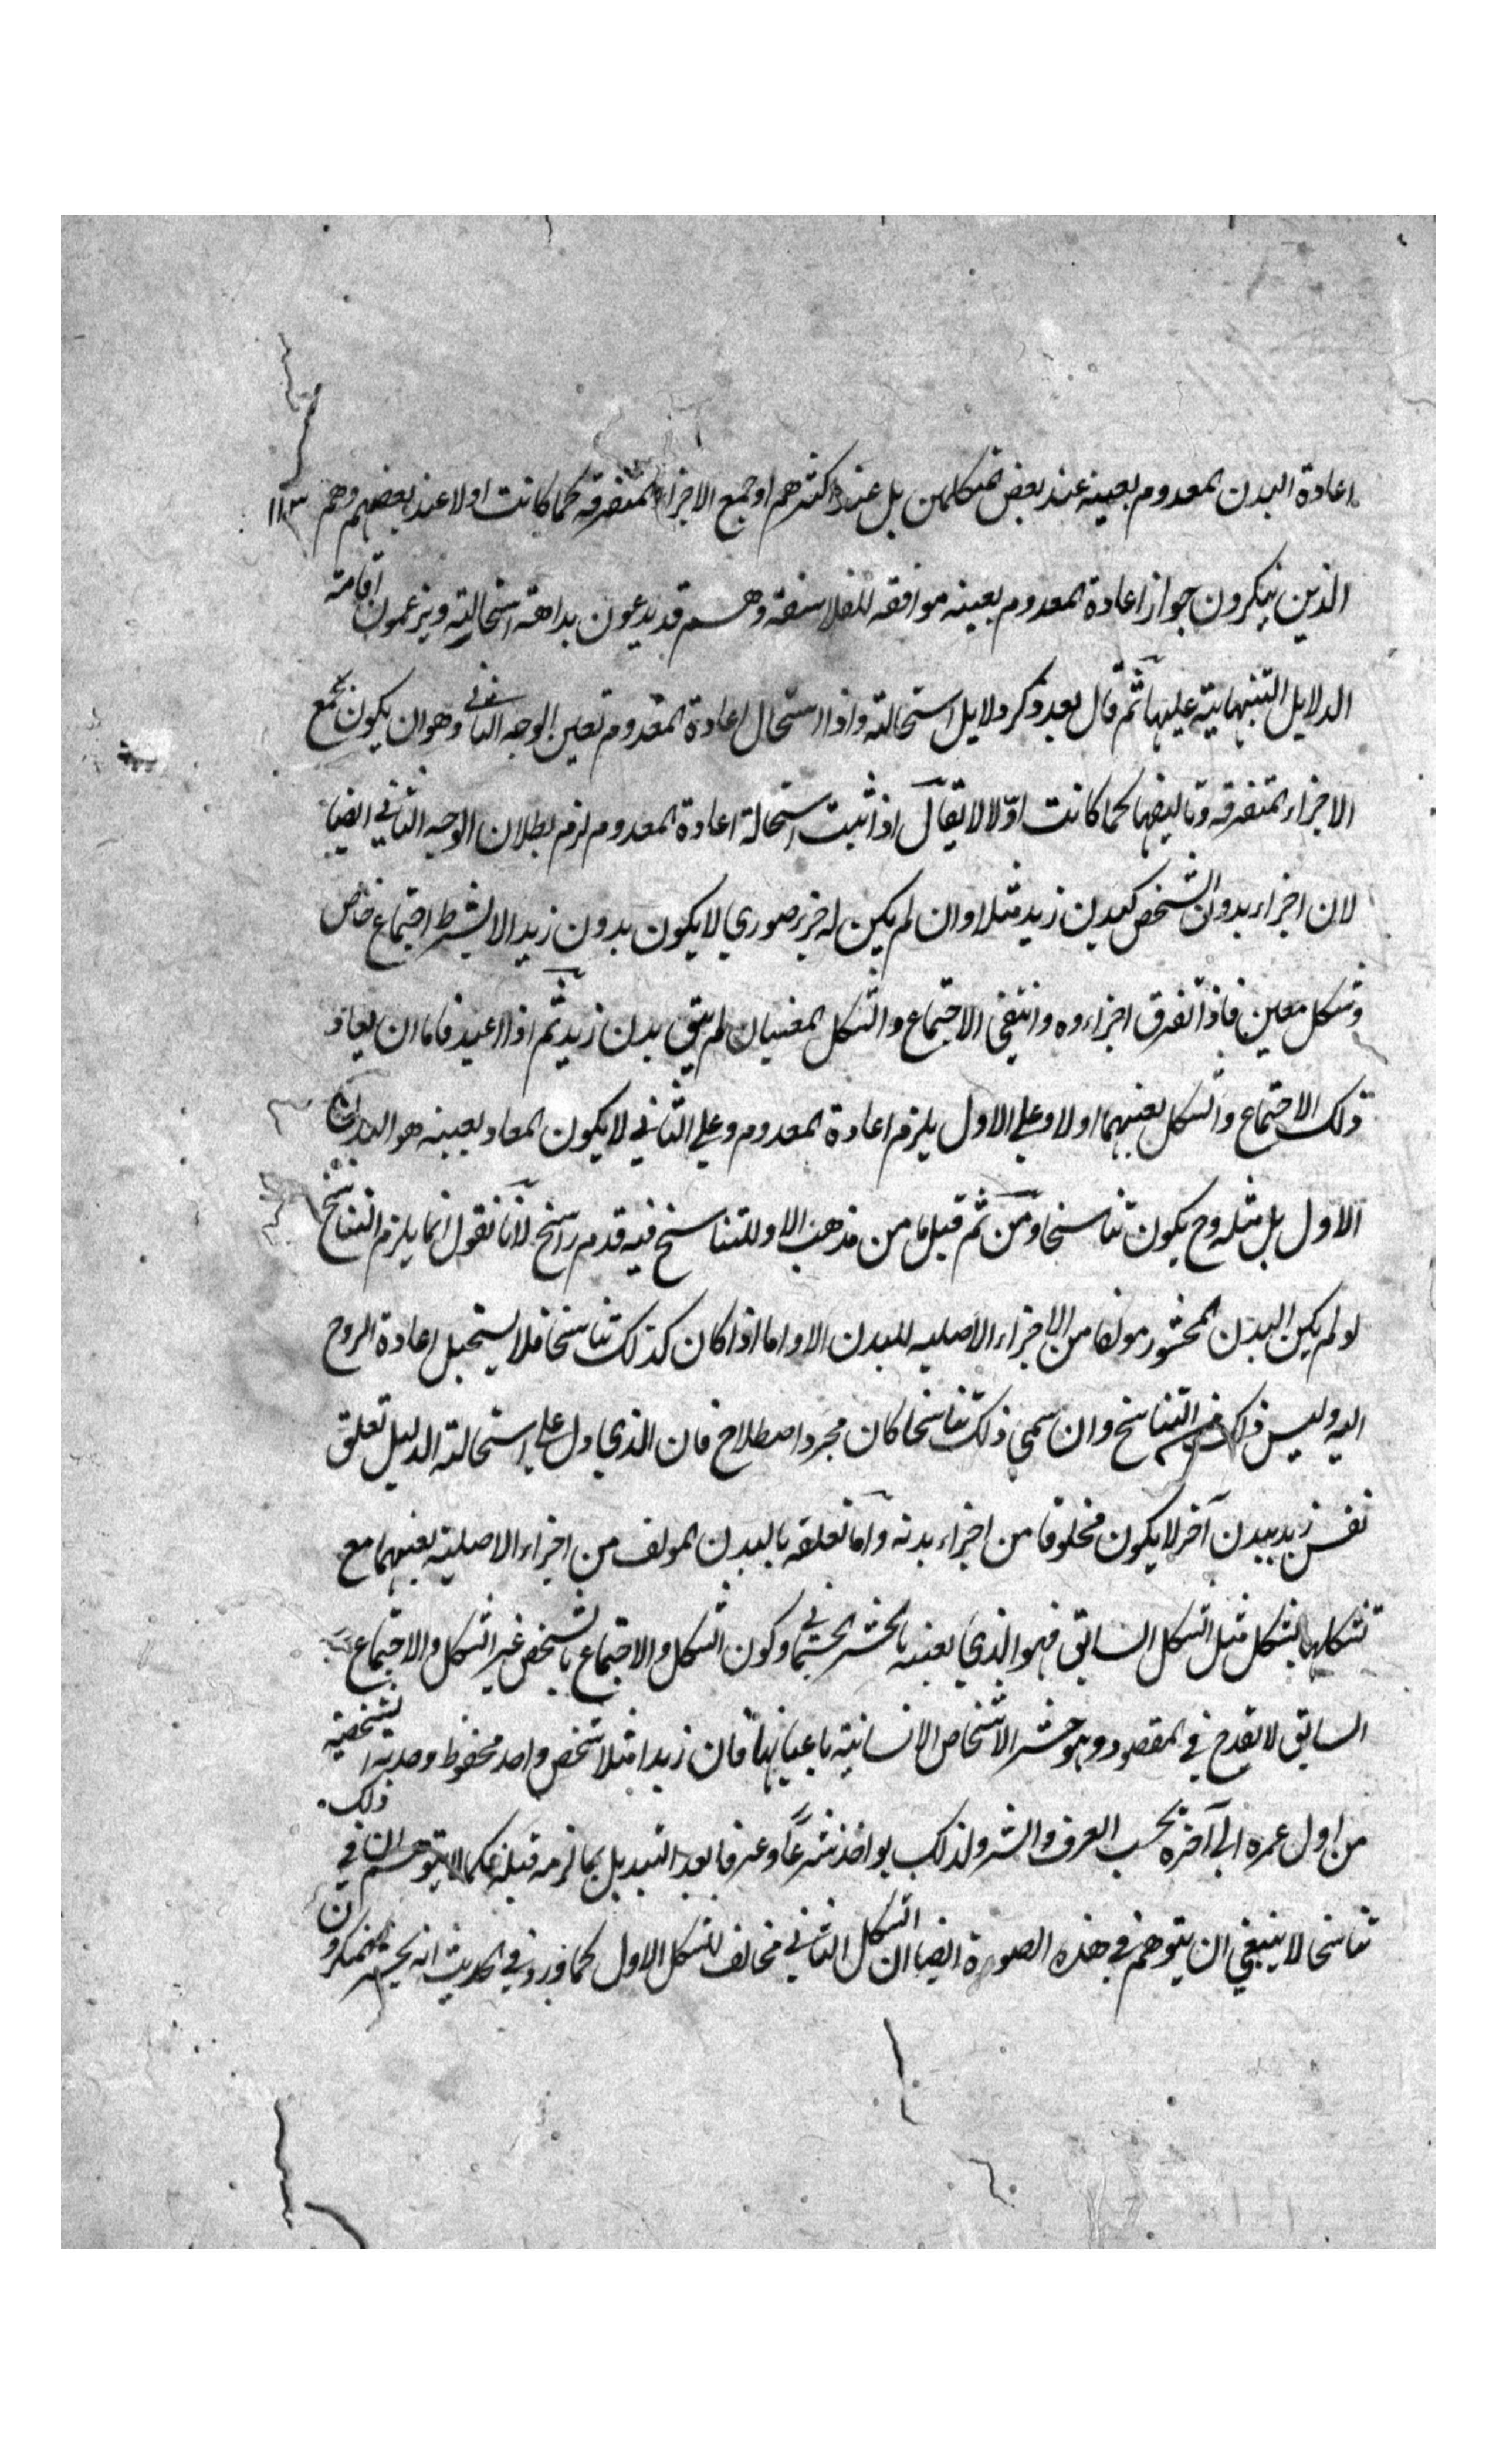 اعادة البدن المعدوم بعينه عند بعض المتكلمين بل عند اكثرهم او جمع الاجزاء المتفرقه كما كانت اولا عند بعضهم وهم ١١٣
الذين ينكرون جواز اعادة المعدوم بعينه موافقه للفلاسفة وهم قد يدعون بداهة استحالته ويزعمون اقامة
الدلايل التنبيهاتية عليها ثم قال بعد ذكر دلايل استحالته واذا استحال اعادة المعدوم تعين الوجه الثاني وهو ان يكون بجمع
الاجزاء المتفرقه وتاليفها كما كانت اولا لا يقال اذا ثبت استحالة اعادة المعدوم لزم بطلان الوجه الثاني ايضا
لان اجزاء بدن الشخص كبدن زيد مثلا وان لم يكن له جزء صوري لا يكون بدون زيد الا بشرط اجتماع خاص
وشكل معين فاذا تفرق اجزاءوه وانتفى الاجتماع والشكل المعنيان لم يبق بدن زيد ثم اذا اعيد فاما ان يعاد
ذلك الاجتماع والشكل بعينهما اولا وعلى الاول يلزم اعادة المعدوم وعلى الثاني لا يكون المعاد بعينه هو البدن
الاول بل مثله وح يكون تناسخا ومن ثم قيل ما من مذهب الا وللتناسخ فيه قدم راسخ لانا نقول انما يلزم التناسخ
لو لم يكن البدن المحشور مولفا من الاجزاء الاصليه للبدن الاو اما اذا كان كذلك تناسخا فلا يستحيل اعادة الروح
اليه وليس ذلك من التناسخ وان سمي ذلك تناسخا كان مجرد اصطلاح فان الذي دل على استحالته الدليل تعلق
نفس زيد ببدن آخر لا يكون مخلوقا من اجزاء بدنه واما تعلقه بالبدن المولف من اجزاء الاصلية بعينها مع
تشكلها بشكل مثل الشكل السابق فهو الذي يعنيه بالحشر الجسماني وكون الشكل والاجتماع بالشخص غير الشكل والاجتماع
السابق لا يقدح في المقصود وهو حشر الاشخاص الانسانية باعيانها فان زيدا مثلا شخص واحد محفوظ وحدته الشخصية
من اول عمره الى آخره بحسب العرف والشرع ولذلك يواخذ شرعا وعرفا بعد التبديل بما لزمه قبله فكما لا يتوهم ان في ذلك
تناسخا لا ينبغي ان يتوهم في هذه الصورة ايضا ان الشكل الثاني مخالف للشكل الاول كما ورد في الحديث انه يحشر المتكبرون